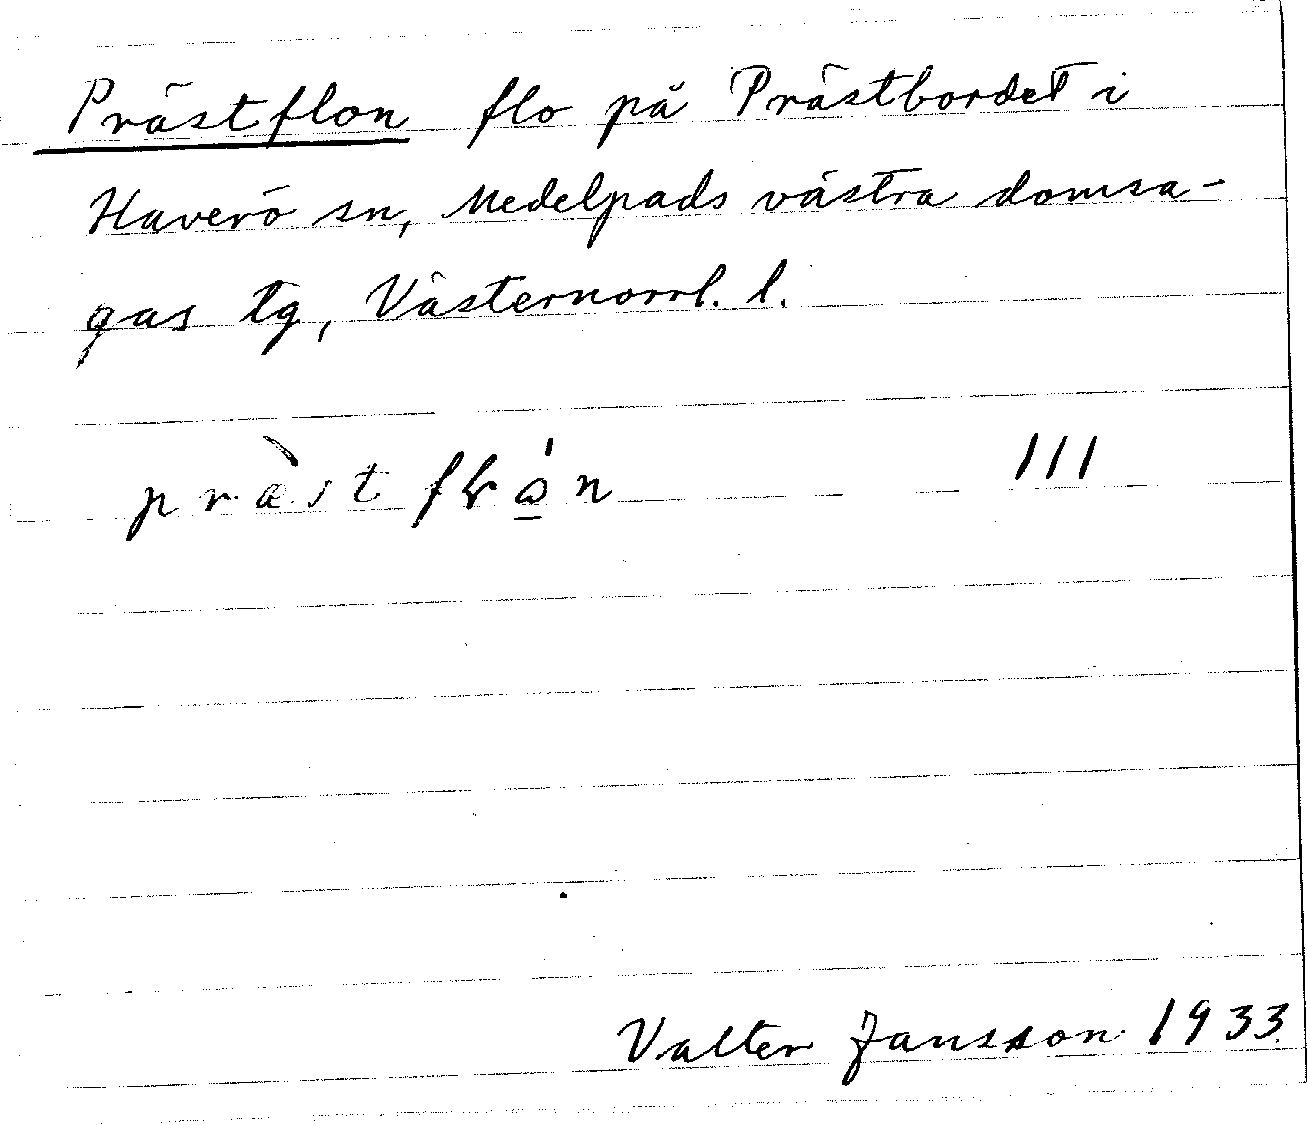 Prästflon flo på Prästbordet i
Haverö sn, Medelpads västra domsa-
gas tg, Västernorrl. l.
præ̀stflo̲̍n III
Valter Jansson 1933